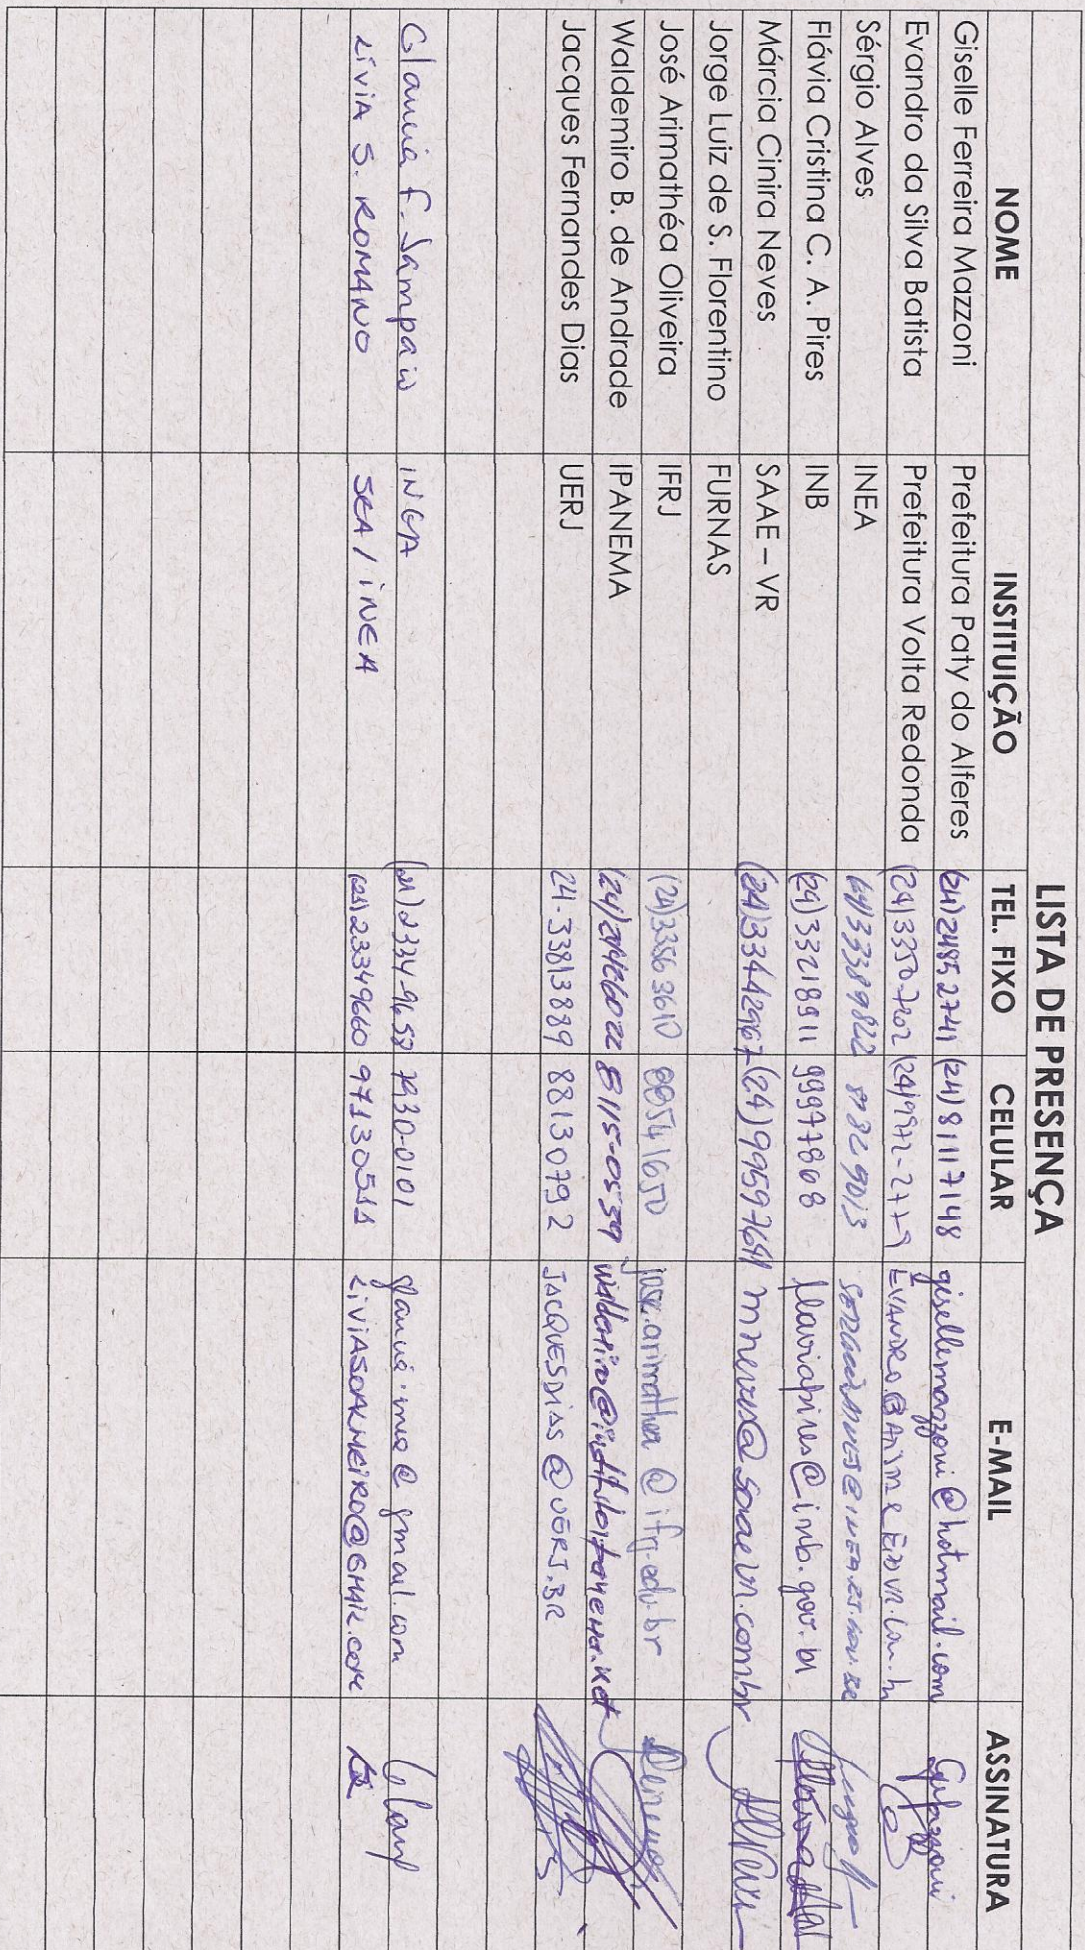 LISTA DE PRESENÇA
NOME INSTITUIÇÃO TEL. FIXO CELULAR E-MAIL ASSINATURA
Giselle Ferreira Mazzoni Prefeitura Paty do Alferes (24) 2485 2741 (24) 81117148 gisellemazzoni@hotmail.com
Evandro da Silva Batista Prefeitura Volta Redonda (24) 3350-7202
Sérgio Alves INEA
Flávia Cristina C. A. Pires INB (24) 33218911 99974868 flaviapires@inb.gov.br
Márcia Cinira Neves SAAE – VR (24) 33442967 (24) 99597641 mneves@saaevr.com.br
Jorge Luiz de S. Florentino FURNAS
José Arimathéa Oliveira IFRJ (24) 3356 3610 jose.arimathea@ifrj.edu.br
Waldemiro B. de Andrade IPANEMA 8115-0539
Jacques Fernandes Dias UERJ 24-33813889 88130792 JACQUESDIAS@UERJ.BR
Glaucia F. Sampaio INGA (21) 2334-9658 7930-0101
LíviA S. ROMANO SEA / iNEA (21) 23349660 97130511